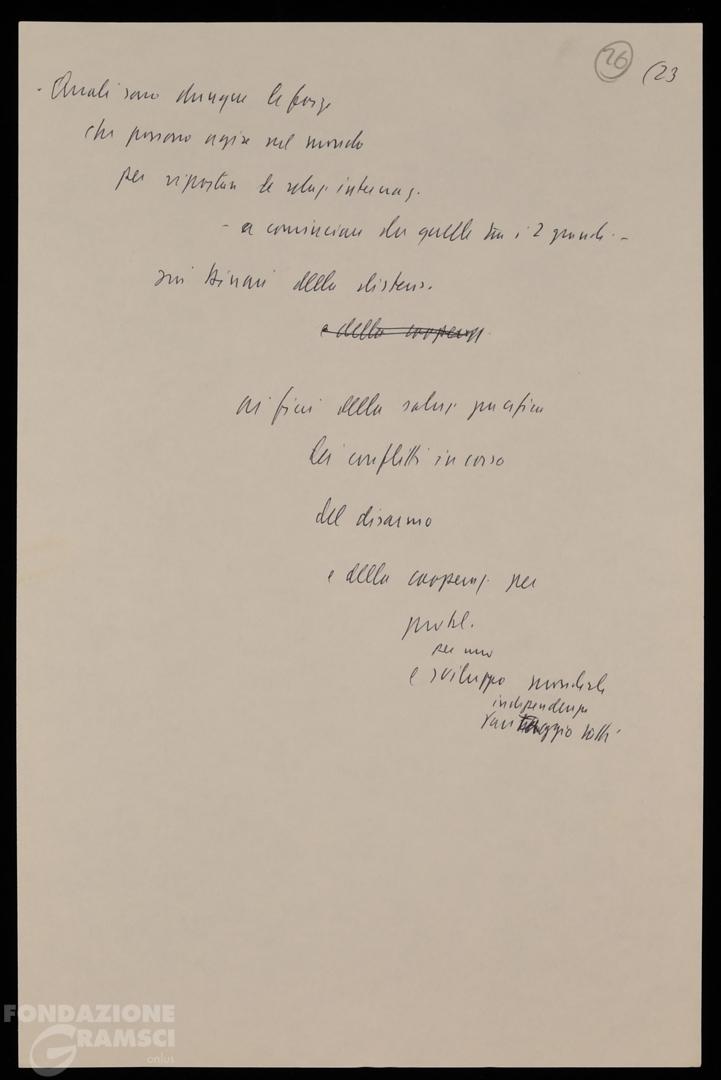 26 (23
- Quali sono dunque le forze
che possono agire nel mondo
per riportare le relaz. internaz.
- a cominciare da quelle tra i 2 grandi -
sui binari della distens.
e della cooperaz.
ai fini della soluz. pacifica
dei conflitti in corso
del disarmo
e della cooperaz. per
probl.
per uno
e sviluppo mondiale
indipendenza
vantaggio tutti
FONDAZIONE
GRAMSCI
onlus